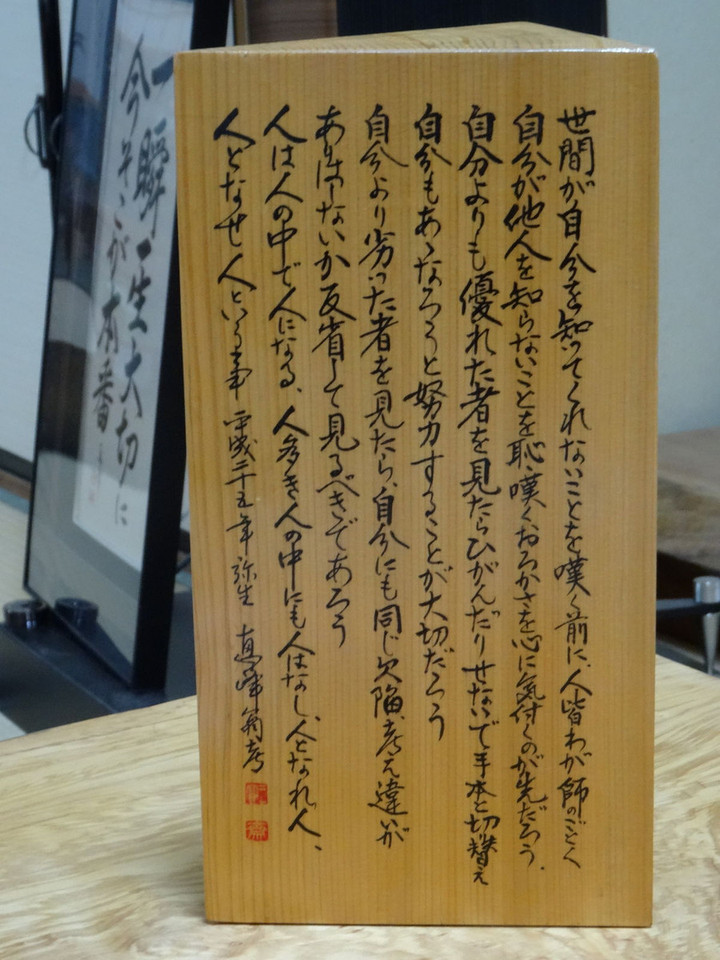 世間が自分を知ってくれないことを嘆く前に、人皆わが師のごとく
自分が他人を知らないことを恥、嘆くおろかさを心に気付くのが先だろう、
自分よりも優れた者を見たらひがんだりせないで手本と切替え
自分もあゝなろうと努力することが大切だろう
自分より劣った者を見たら、自分にも同じ欠陥、考え違いが
ありはしないか反省して見るべきであろう
人は人の中で人になる、人多き人の中にも人はなし、人となれ人、
人となせ人という事 平成二十五年 弥生
一瞬一生大切に
今そこが本番